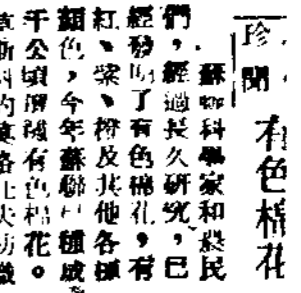 珍聞
有色棉花
蘇聯科學家和農民
們，經過長久研究，已
經發明了有色棉花，有
紅、紫、橙及其他各種
顏色，今年蘇聯已種成
千公頃這種有色棉花。